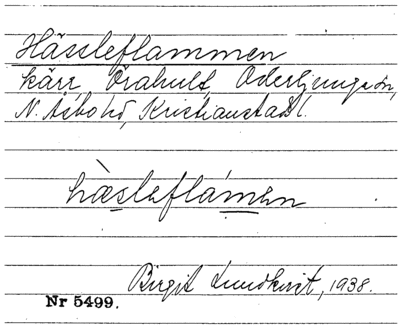 Hässleflammen
kärr, Örahult, Oderljunga sn,
N. Åsbo hd, Kristianstads l.
hæ̀sleflámən
Birgit Lundkvist, 1938.
Nr 5499.